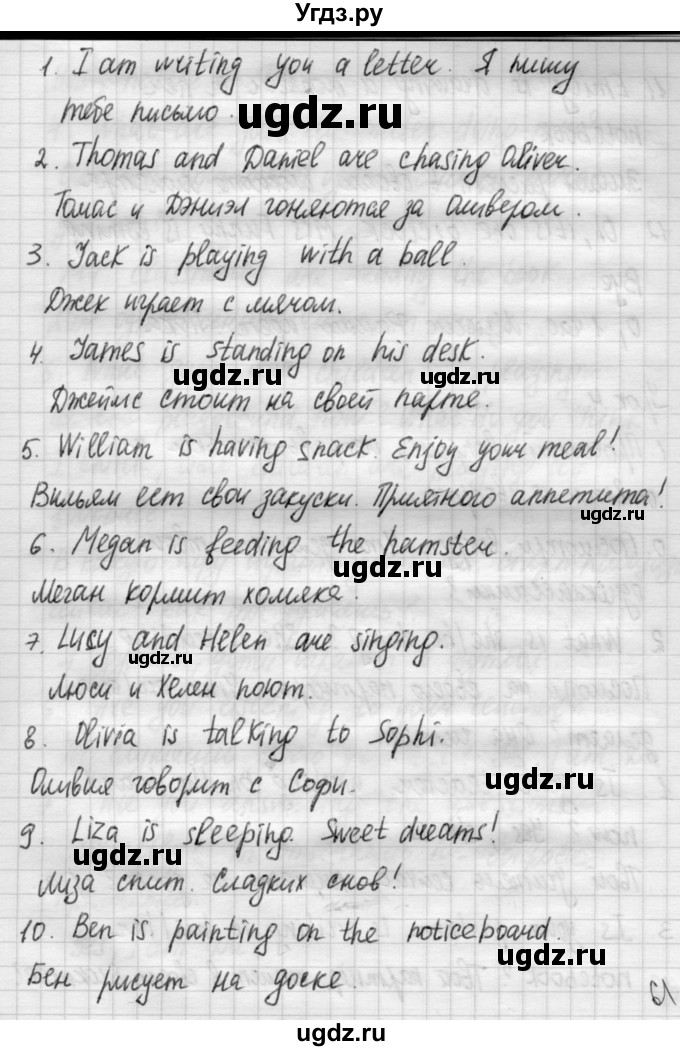 Угдз.ру
1. I am writing you a letter. Я пишу
тебе письмо.
ugdz.ru
2. Thomas and Daniel are chasing Oliver.
Томас и Дэниэл гоняются за Оливером.
3. Jack is playing with a ball.
ugdz.ru
Джек играет с мячом.
4. James is standing on his desk.
ugdz.ru
ugdz.ru
Джеймс стоит на своей парте.
5. William is having snack. Enjoy your meal!
Вильям ест свои закуски. Приятного аппетита!
ugdz.ru
6. Megan is feeding the hamster.
ugdz.ru
Меган кормит хомяка.
7. Lucy and Helen are singing.
ugdz.ru
Люси и Хелен поют.
8. Olivia is talking to Sophi.
Оливия говорит с Софи.
ugdz.ru
9. Liza is sleeping. Sweet dreams!
ugdz.ru
Лиза спит. Сладких снов!
10. Ben is painting on the noticeboard.
Бен рисует на доске.
ugdz.ru
61
ugdz.ru